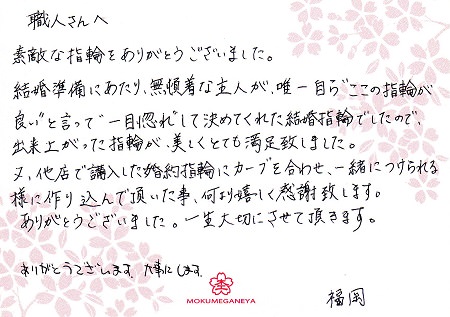 職人さんへ
素敵な指輪をありがとうございました。
結婚準備にあたり、無頓着な主人が、唯一自ら“ここの指輪が
良い”と言って“一目惚れ”して決めてくれた結婚指輪でしたので、
出来上がった指輪が、美しくとても満足致しました。
又、他店で購入した婚約指輪にカーブを合わせ、一緒につけられる
様に作り込んで頂いた事、何より嬉しく感謝致します。
ありがとうございました。一生大切にさせて頂きます。
ありがとうございます 大事にします
MOKUMEGANEYA
福岡